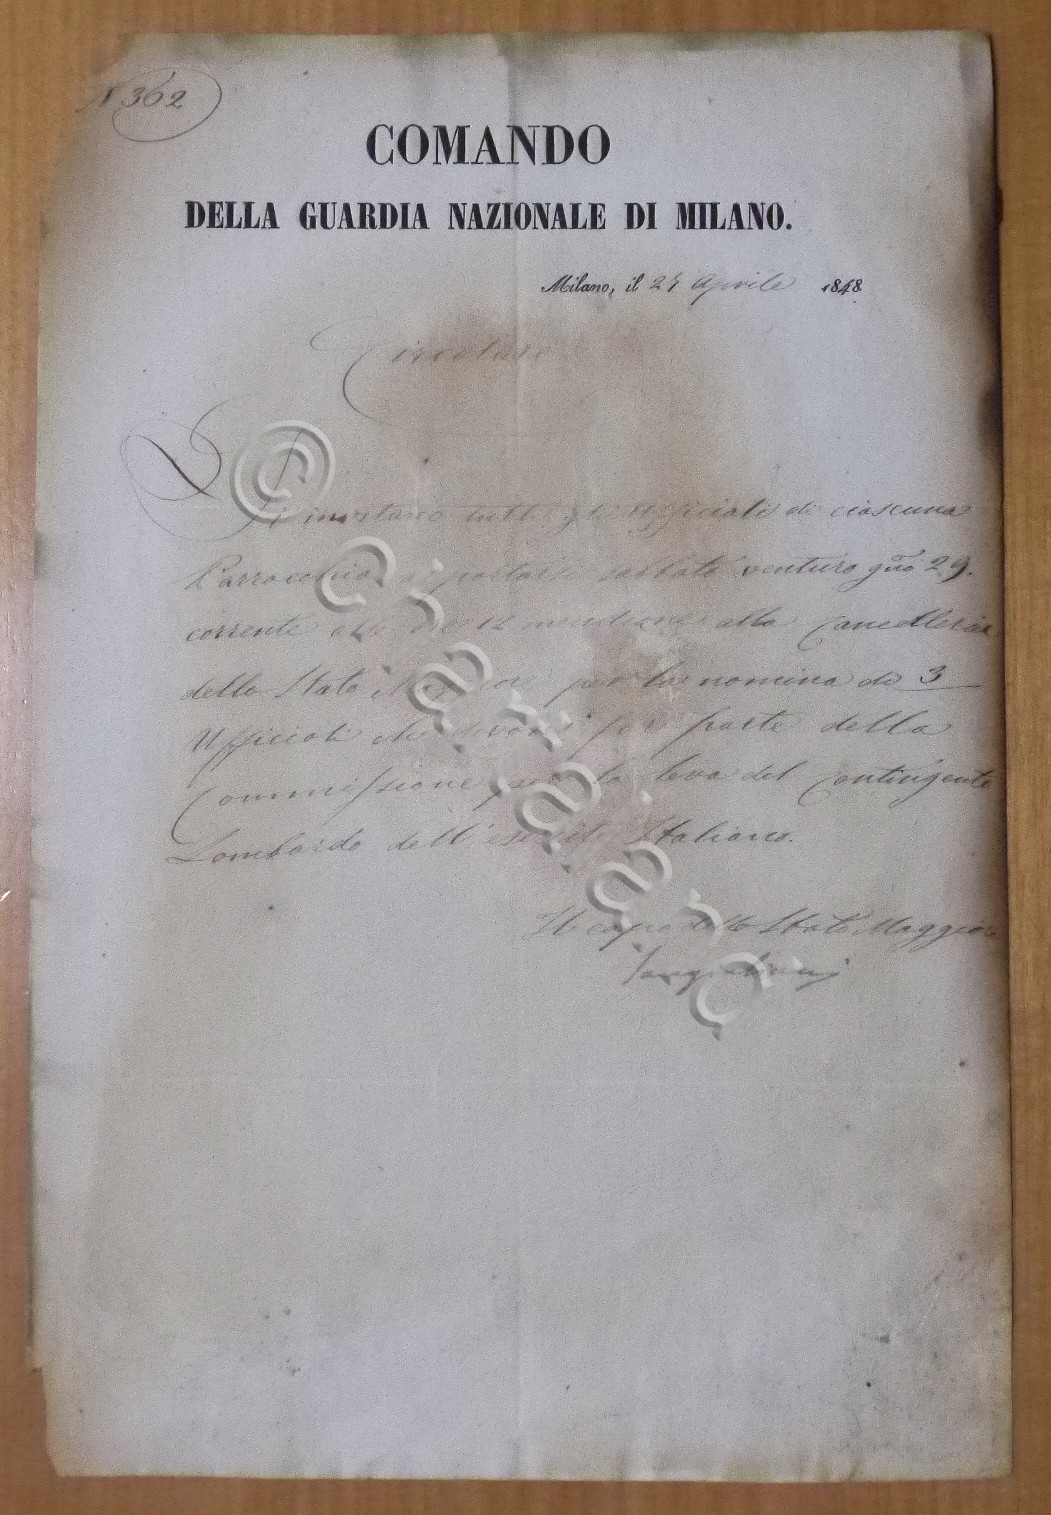 N 362
COMANDO
DELLA GUARDIA NAZIONALE DI MILANO.
Milano, il 27 Aprile 1848
Circolare
Si invitano tutti gli Ufficiali di ciascuna
Parrocchia a portarsi sabbato venturo gno 29.
corrente alle ore 12 meridiane alla Cancelleria
dello Stato Maggiore per la nomina di 3
Ufficiali che devono far parte della
Commissione per la leva del Contingente
Lombardo dell'esercito Italiano.
Il capo dello Stato Maggiore
© Chartaland